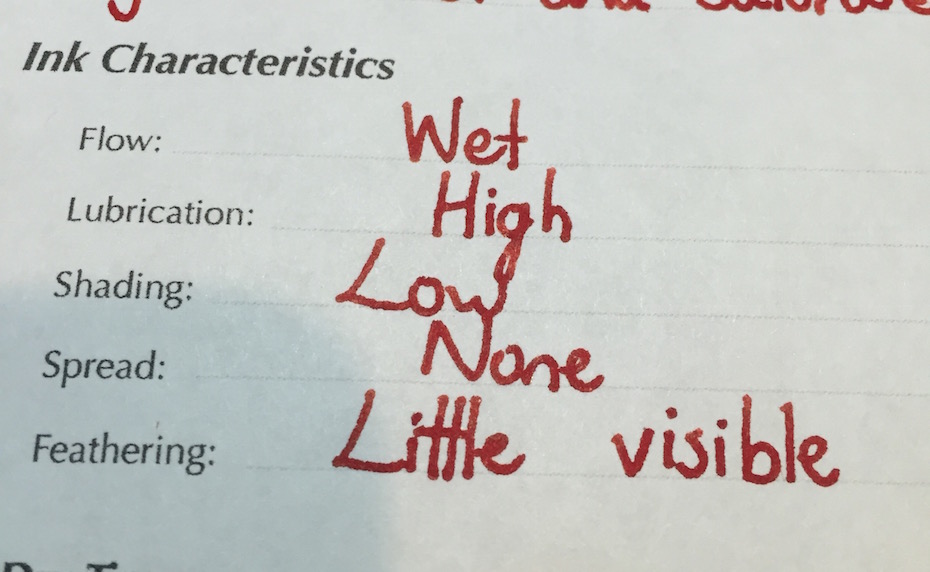 Ink Characteristics
Flow: Wet
Lubrication: High
Shading: Low
Spread: None
Feathering: Little visible